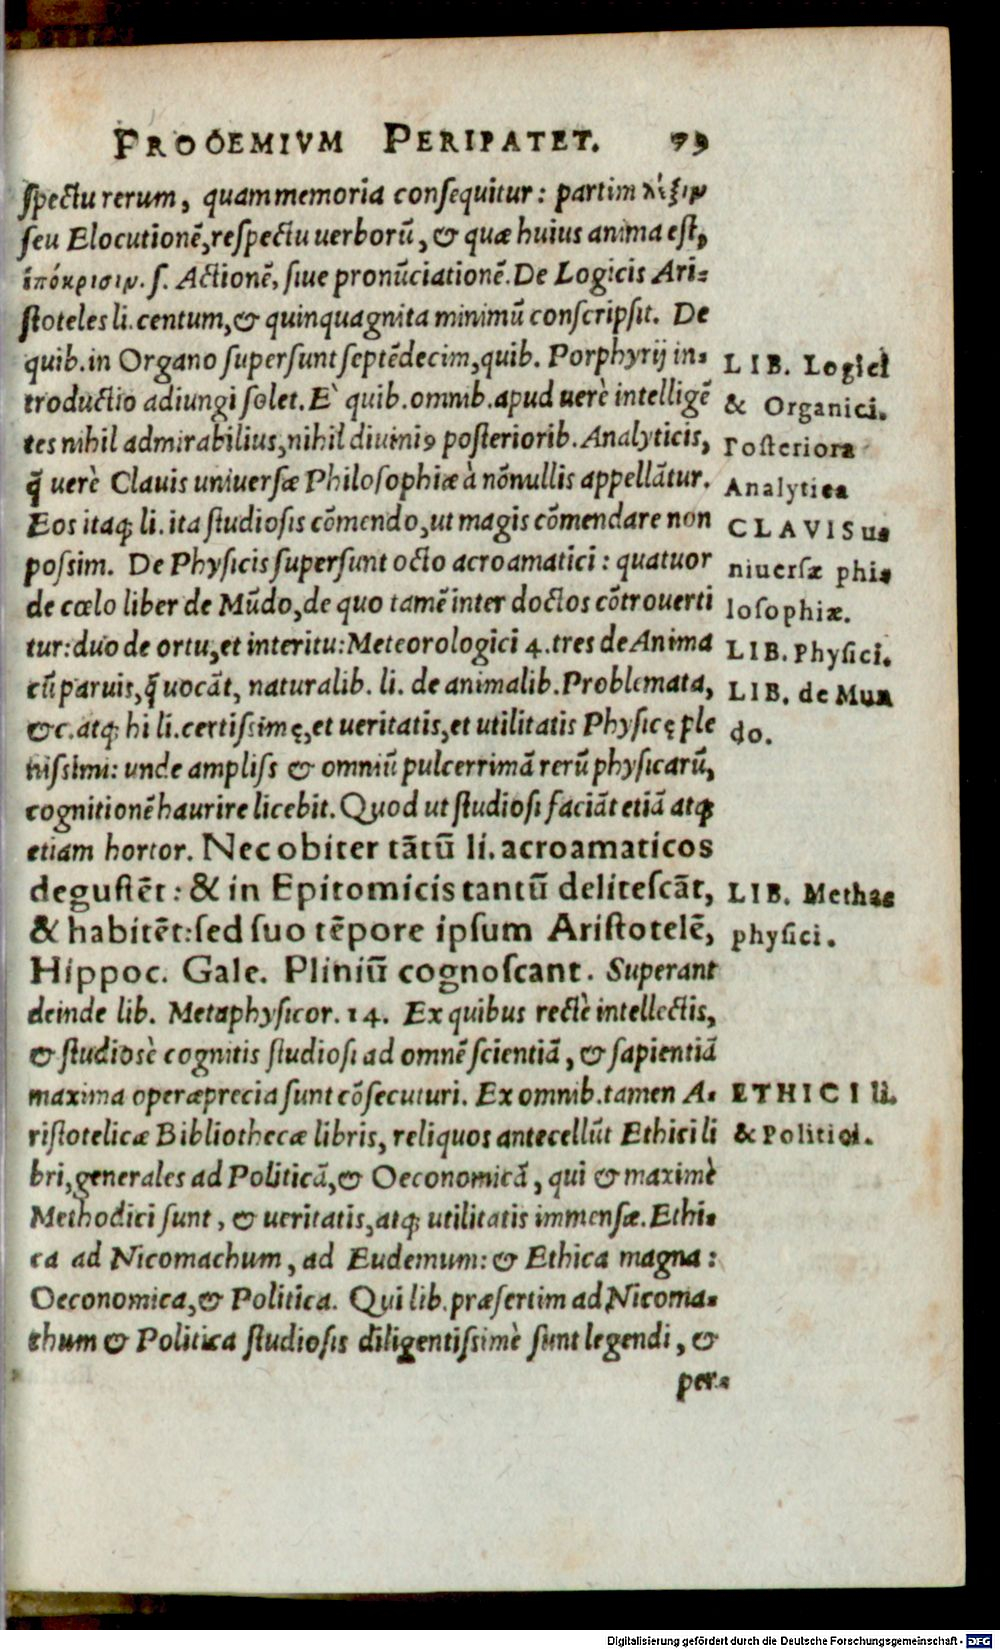 PROOEMIVM PERIPATET. 79
spectu rerum, quam memoria consequitur: partim λέξιν
seu Elocutionẽ, respectu uerborũ, & quæ huius anima est,
ὑπόκρισιν. s. Actionẽ, siue pronũciationẽ. De Logicis Ari-
stoteles li. centum, & quinquagnita minimũ conscripsit. De
quib. in Organo supersunt septẽdecim, quib. Porphyrij in-
troductio adiungi solet. E` quib. omnib. apud uerè intelligẽ
tes nihil admirabilius, nihil diuiniꝰ posteriorib. Analyticis,
q̃ uerè Clauis uniuersæ Philosophiæ à nõnullis appellãtur.
Eos itaq; li. ita studiosis cõmendo, ut magis cõmendare non
possim. De Physicis supersunt octo acroamatici: quatuor
de cœlo liber de Mũdo, de quo tamẽ inter doctos cõtrouerti
tur: duo de ortu, et interitu: Meteorologici 4. tres de Anima
cũ paruis, q̃ uocãt, naturalib. li. de animalib. Problemata,
&c. atq; hi li. certissimę, et ueritatis, et utilitatis Physicę ple
nissimi: unde ampliss & omniũ pulcerrimã rerũ physicarũ,
cognitionẽ haurire licebit. Quod ut studiosi faciãt etiã atq;
etiam hortor. Nec obiter tãtũ li. acroamaticos
degustẽt: & in Epitomicis tantũ delitescãt,
& habitẽt: sed suo tẽpore ipsum Aristotelẽ,
Hippoc. Gale. Pliniũ cognoscant. Superant
deinde lib. Metaphysicor. 14. Ex quibus rectè intellectis,
& studiosè cognitis studiosi ad omnẽ scientiã, & sapientiã
maxima operæprecia sunt cõsecuturi. Ex omnib. tamen A-
ristotelicæ Bibliothecæ libris, reliquos antecellũt Ethici li
bri, generales ad Politicã, & Oeconomicã, qui & maximè
Methodici sunt, & ueritatis, atq; utilitatis immensæ. Ethi-
ca ad Nicomachum, ad Eudemum: & Ethica magna:
Oeconomica, & Politica. Qui lib. præsertim ad Nicoma-
chum & Politica studiosis diligentissimè sunt legendi, &
per-
LIB. Logici
& Organici.
Posteriora
Analytica
CLAVIS u-
niuersæ phi-
losophiæ.
LIB. Physici.
LIB. de Mun
do.
LIB. Metha-
physici.
ETHICI li.
& Politici.
Digitalisierung gefördert durch die Deutsche Forschungsgemeinschaft - DFG